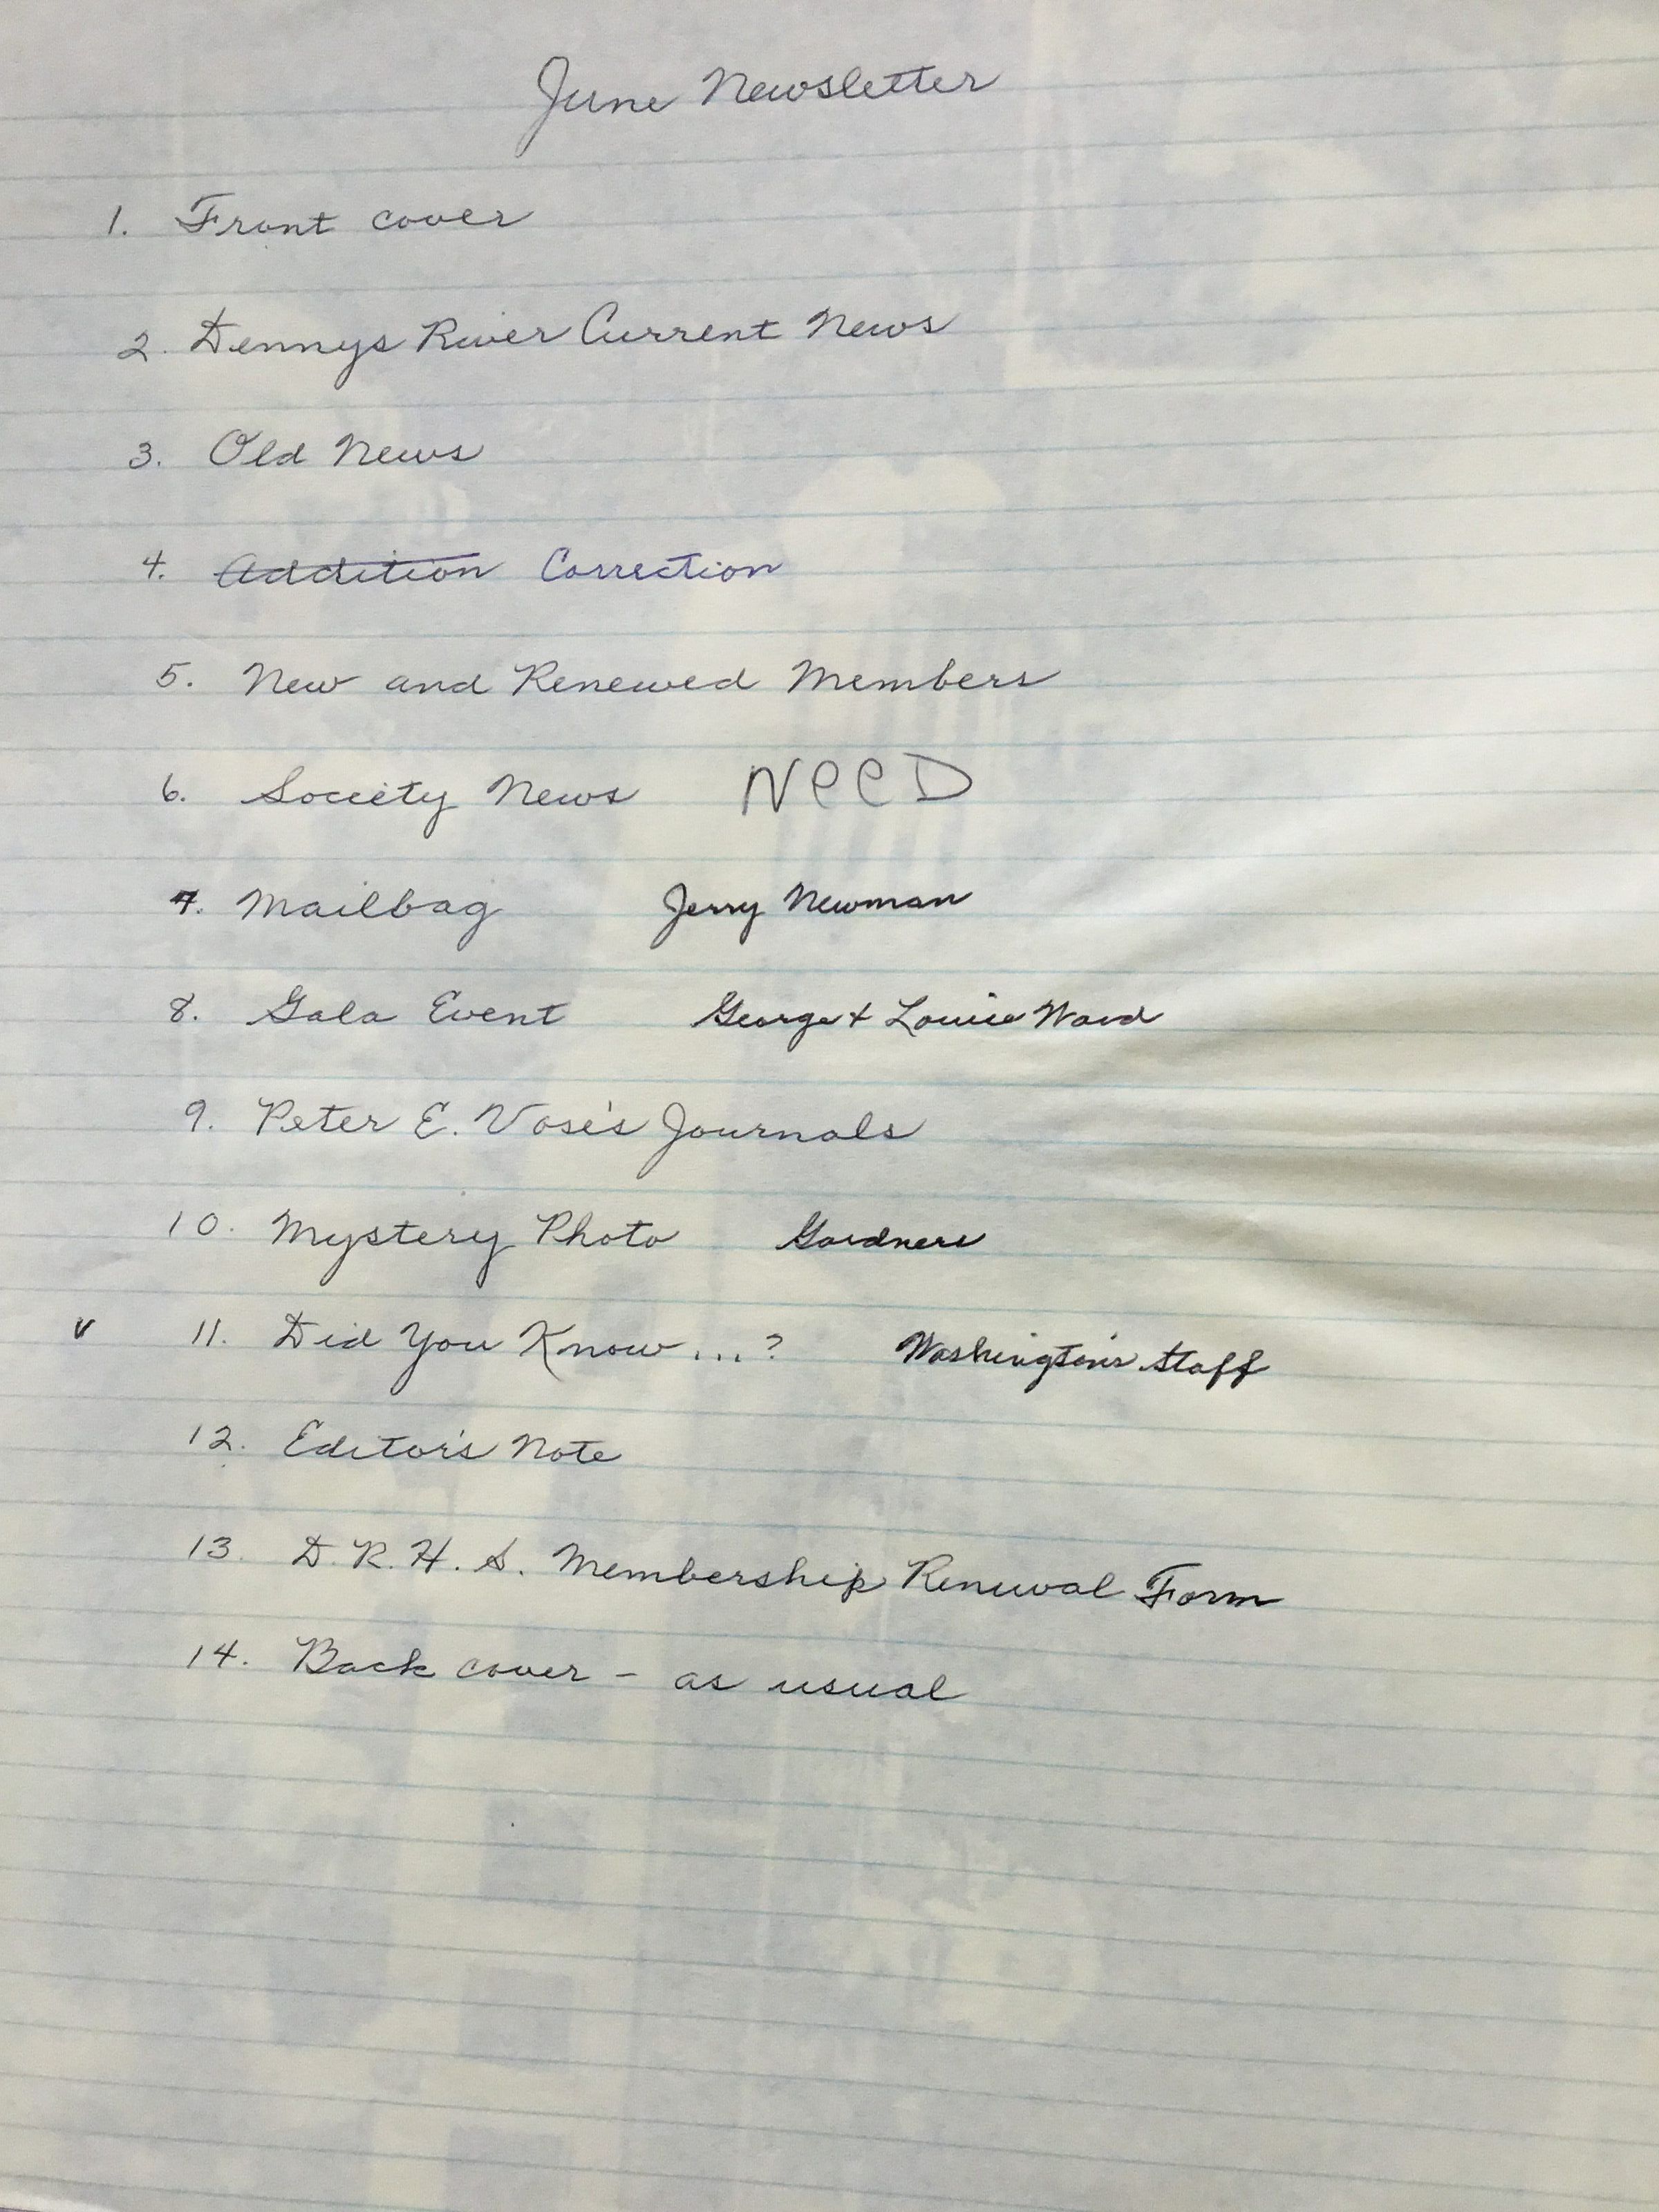 June Newsletter
1. Front cover
2. Dennys River Current News
3. Old News
4. Addition Correction
5. New and Renewed Members
6. Society News NeeD
7. Mailbag Jerry Newman
8. Gala Event George + Louise Ward
9. Peter E. Vose's Journals
10. Mystery Photo Gardners
v 11. Did You Know...? Washington's Staff
12. Editor's Note
13. D.R.H.S. Membership Renewal Form
14. Back cover - as usual